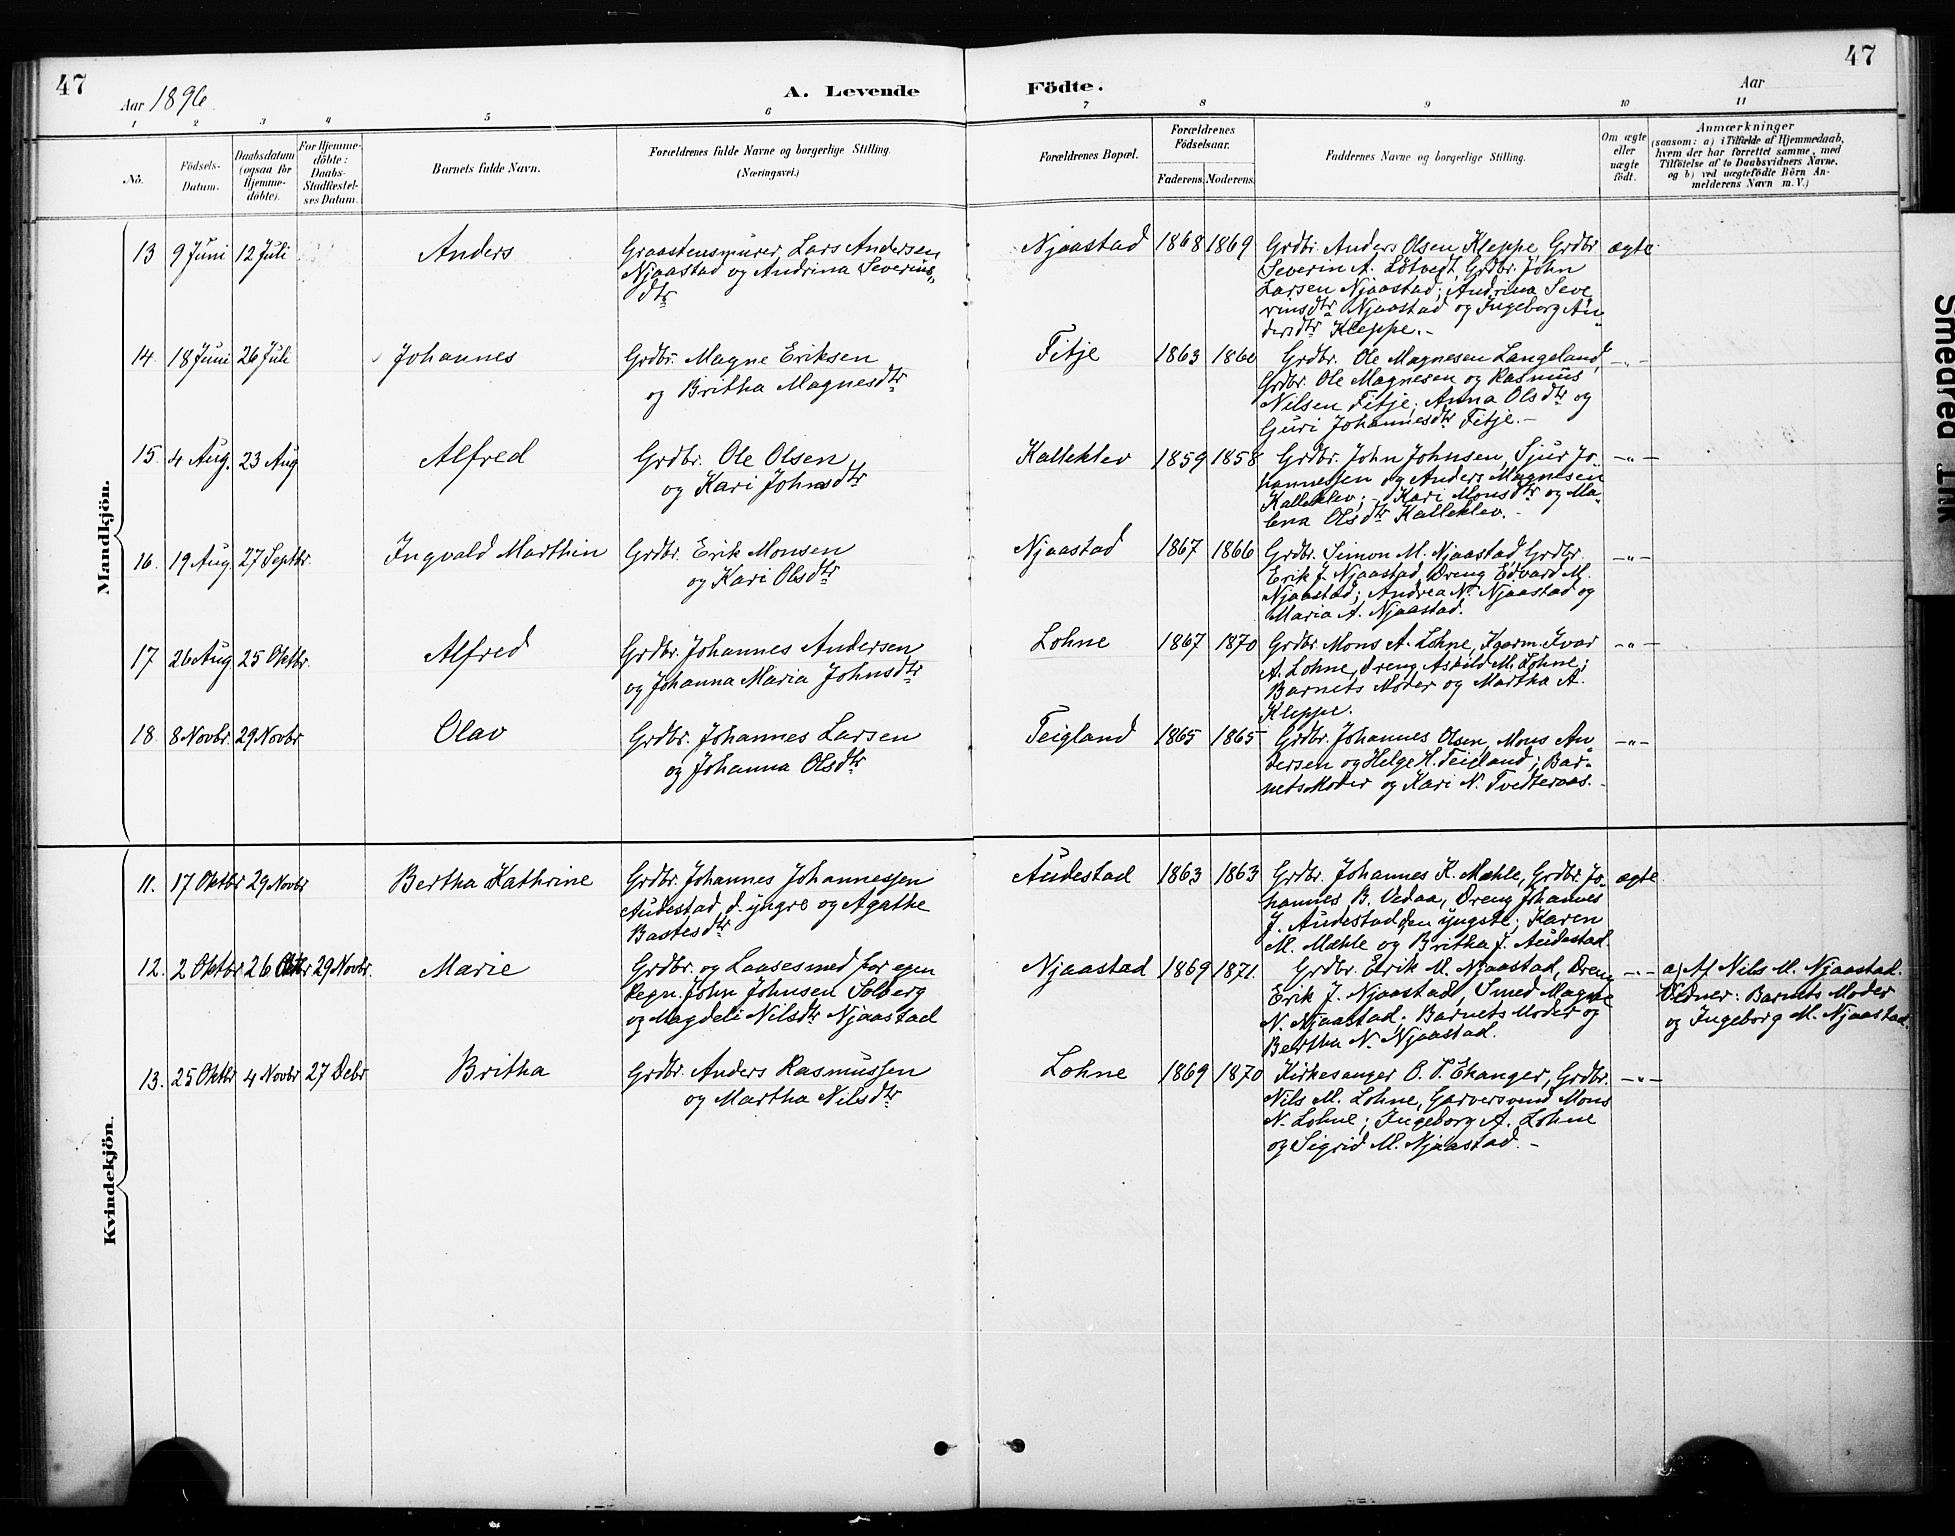 47
Aar 1896.
A. Levende
Födte.
Aar
47
1 2 3 4 5 6 7 8 9 10 11
No.
Födsels-
Datum.
Daabsdatum
(ogsaa for
Hjemme-
döbte).
For Hjemme-
döbte:
Daabs-
Stadfæstel-
ses Datum.
Barnets fulde Navn.
Forældrenes fulde Navne og borgerlige Stilling.
(Næringsvei.)
Forældrenes Bopæl.
Forældrenes
Födselsaar.
Faderens. Moderens.
Faddernes Navne og borgerlige Stilling.
Om ægte
eller
uægte
födt.
Anmærkninger
(saasom: a) i Tilfælde af Hjemmedaab,
hvem der har forrettet samme, med
Tilföielse af to Daabsvidners Navne,
og b) ved uægtefödte Börn An-
melderens Navn m. V.)
Mandkjön.
13 9 Juni 12 Juli Anders
Graastensmurer Lars Andersen
Njaastad og Andrina Severins-
dtr
Njaastad 1868 1869
Grdbr. Anders Olsen Kleppe, Grdbr
Severin A. Lötvedt, Grdbr. John
Larsen Njaastad; Andrina Seve
rinsdtr Njaastad og Ingeborg An-
dersdtr Kleppe.-
ægte
14. 18 Juni 26 Juli Johannes
Grdbr. Magne Eriksen
og Britha Magnesdtr
Fitje 1863 1860
Grdbr. Ole Magnesen Langeland,
Grdbr. Ole Magnesen og Rasmus
Nilsen Fitje; Anna Olsdtr og
Guri Johannesdtr Fitje.-
-„-
15. 4 Aug. 23 Aug Alfred
Grdbr. Ole Olsen
og Kari Johnsdtr
Kalleklev 1859 1858
Grdbr. John Johnsen, Sjur Jo-
hannessen og Anders Magnesen
Kalleklev; - Kari Monsdtr og Ma-
lena Olsdtr Kalleklev.-
-„-
16. 19 Aug. 27 Septbr. Ingvald Marthin
Grdbr. Erik Monsen
og Kari Olsdtr
Njaastad 1867 1866
Grdbr. Simon M. Njaastad Grdbr.
Erik J. Njaastad, Dreng Edvard M.
Njaastad; Andrea N. Njaastad og
Maria A. Njaastad.
-„-
17 26 Aug 25 Oktbr. Alfred
Grdbr. Johannes Andersen
og Johanna Maria Johnsdtr
Lohne 1867 1870
Grdbr. Mons A. Lohne, Kaarm. Ivar
A. Lohne, Dreng Askild M. Lohne;
Barnets Moder og Martha A.
Kleppe.
-„-
18. 8 Novbr. 29 Novbr Olav
Grdbr. Johannes Larsen
og Johanna Olsdtr
Teigland 1865 1865
Grdbr. Johannes Olsen, Mons An-
dersen og Helge H. Teigland; Bar-
nets Moder og Kari N. Tvedteraas.-
-„-
Kvindekjön.
11. 17 Oktbr 29 Novbr Bertha Kathrine
Grdbr. Johannes Johannessen
Audestad d. yngre og Agathe
Bastesdtr
Audestad 1863 1863
Grdbr. Johannes K. Mæhle, Grdbr. Jo-
hannes B. Vedaa, Dreng Johannes
J. Audestad den yngste; Karen
M. Mæhle og Britha J. Audestad.
ægte.
12. 2 Oktbr 26 Oktbr 29 Novbr. Marie
Grdbr. og Laasesmed for egen
Regn. John Johnsen Solberg
og Magdeli Nilsdtr Njaastad
Njaastad 1869 1871.
Grdbr. Erik M. Njaastad, Dreng
Erik J. Njaastad, Smed Magne
N. Njaastad. Barnets Moder og
Bertha N. Njaastad.
-„-
a) Af Nils M. Njaastad.
Vidner: Barnets Moder
og Ingeborg M. Njaastad.
13. 25 Oktbr 4 Novbr 27 Debr Britha
Grdbr. Anders Rasmussen
og Martha Nilsdtr
Lohne 1869 1870
Kirkesanger O. T. Ekanger, Grdbr.
Nils M. Lohne, Garversvend Mons
N. Lohne; Ingeborg A. Lohne
og Sigrid M. Njaastad.-
-„-